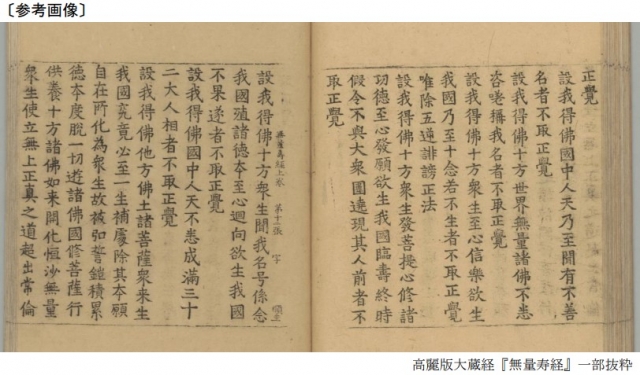 〔参考画像〕
正覺
設我得佛國中人天乃至聞有不善
名者不取正覺
設我得佛十方世界無量諸佛不悉
咨嗟稱我名者不取正覺
設我得佛十方衆生至心信樂欲生
我國乃至十念若不生者不取正覺
唯除五逆誹謗正法
設我得佛十方衆生發菩提心修諸
功德至心發願欲生我國臨壽終時
假令不與大衆圍遶現其人前者不
取正覺
無量壽經上卷
設我得佛十方衆生聞我名号係念
我國殖諸德本至心迴向欲生我國
不果遂者不取正覺
設我得佛國中人天不悉成滿三十
二大人相者不取正覺
設我得佛他方佛土諸菩薩衆来生
我國究竟必至一生補處除其本願
自在所化為衆生故被弘誓鎧積累
德本度脫一切遊諸佛國修菩薩行
供養十方諸佛如来開化恒沙無量
衆生使立無上正真之道超出常倫
高麗版大蔵経『無量寿経』一部抜粋